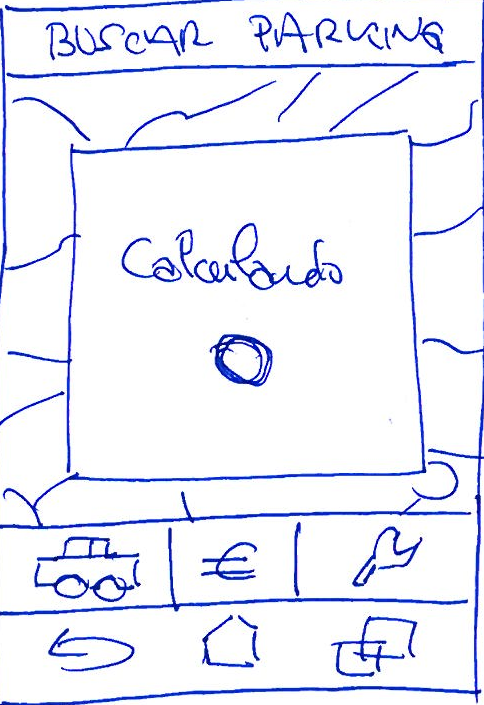 BUSCAR PARKING
Calculando
€